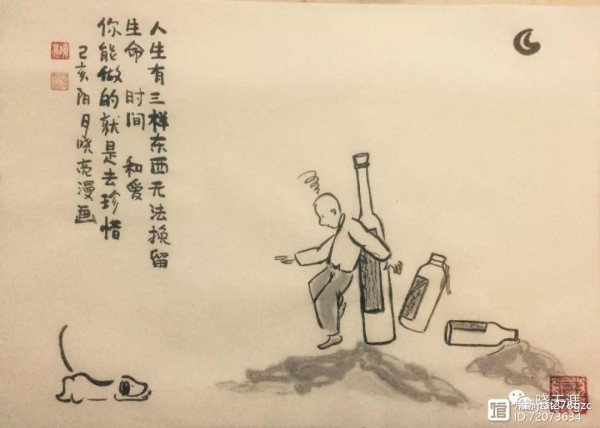 人生有三样东西无法挽留
生命 时间 和爱
你能做的就是去珍惜
己亥阳月晓亮漫画
晓天涯
ID:72073634